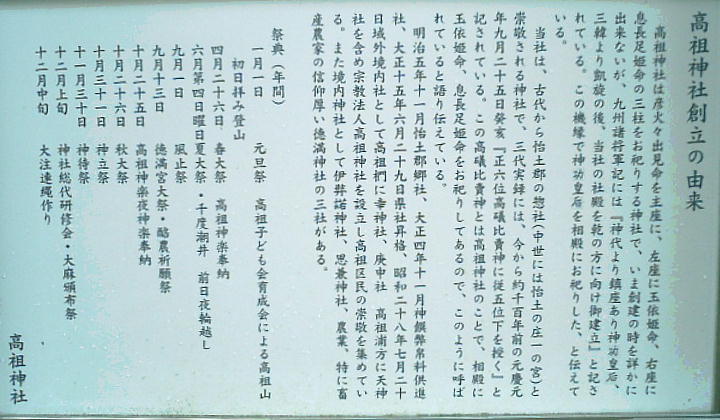 高祖神社創立の由来
高祖神社は彦火々出見命を主座に、左座に玉依姫命、右座に
息長足姫命の三柱をお祀りする神社で、いま創建の時を詳かに
出来ないが、九州諸将軍記には『神代より鎮座あり神功皇后、
三韓より凱旋の後、当社の社殿を乾の方に向け御建立』と記さ
れている。この機縁で神功皇后を相殿にお祀りした、と伝えて
いる。
当社は、古代から怡土郡の惣社(中世には怡土の庄一の宮)と
崇敬される神社で、三代実録には、今から約千百年前の元慶元
年九月二十五日癸亥『正六位高礒比賣神に従五位下を授く』と
記されている。この高礒比賣神とは高祖神社のことで、相殿に
玉依姫命、息長足姫命をお祀りしてあるので、このように呼ば
れていると語り伝えている。
明治五年十一月怡土郡郷社、大正四年十一月神饌幣帛料供進
社、大正十五年六月二十九日県社昇格、昭和二十八年七月二十
日域外境内社として高祖椚に幸神社、庚申社 高祖浦方に天神
社を含め宗教法人高祖神社を設立し高祖区民の崇敬を集めてい
る。また境内神社として伊弉諾神社、思兼神社、農業、特に畜
産農家の信仰厚い徳満神社の三社がある。
祭典(年間)
一月一日 元旦祭 高祖子ども会育成会による高祖山
初日拝み登山
四月二十六日 春大祭 高祖神楽奉納
六月第四日曜日 夏大祭・千度潮井 前日夜輪越し
九月一日 風止祭
九月十三日 徳満宮大祭・酪農祈願祭
十月二十五日 高祖神楽夜神楽奉納
十月二十六日 秋大祭
十月三十一日 神立祭
十一月三十日 神待祭
十二月上旬 神社総代研修会・大麻頒布祭
十二月中旬 大注連縄作り
高祖神社